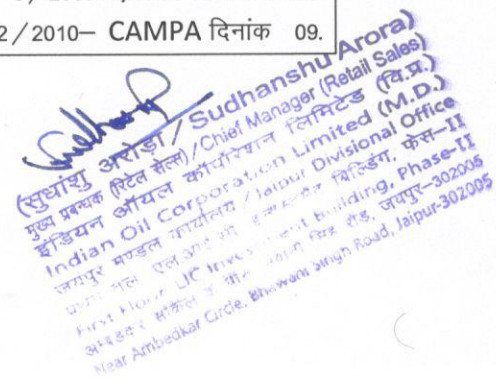 2/2010– CAMPA दिनांक 09.
(सुधांशु अरोड़ा / Sudhanshu Arora)
मुख्य प्रबन्धक (रिटेल सेल्स)/Chief Manager (Retail Sales)
इंडियन ऑयल कॉर्पोरेशन लिमिटेड (वि.प्र.)
Indian Oil Corporation Limited (M.D.)
जयपुर मण्डल कार्यालय / Jaipur Divisional Office
एल.आई.सी. बिल्डिंग, फेस–II
First Floor, LIC Investment Building, Phase-II
अम्बेडकर सर्किल के पास, भवानी सिंह रोड, जयपुर–302005
Near Ambedkar Circle, Bhawani Singh Road, Jaipur-302005